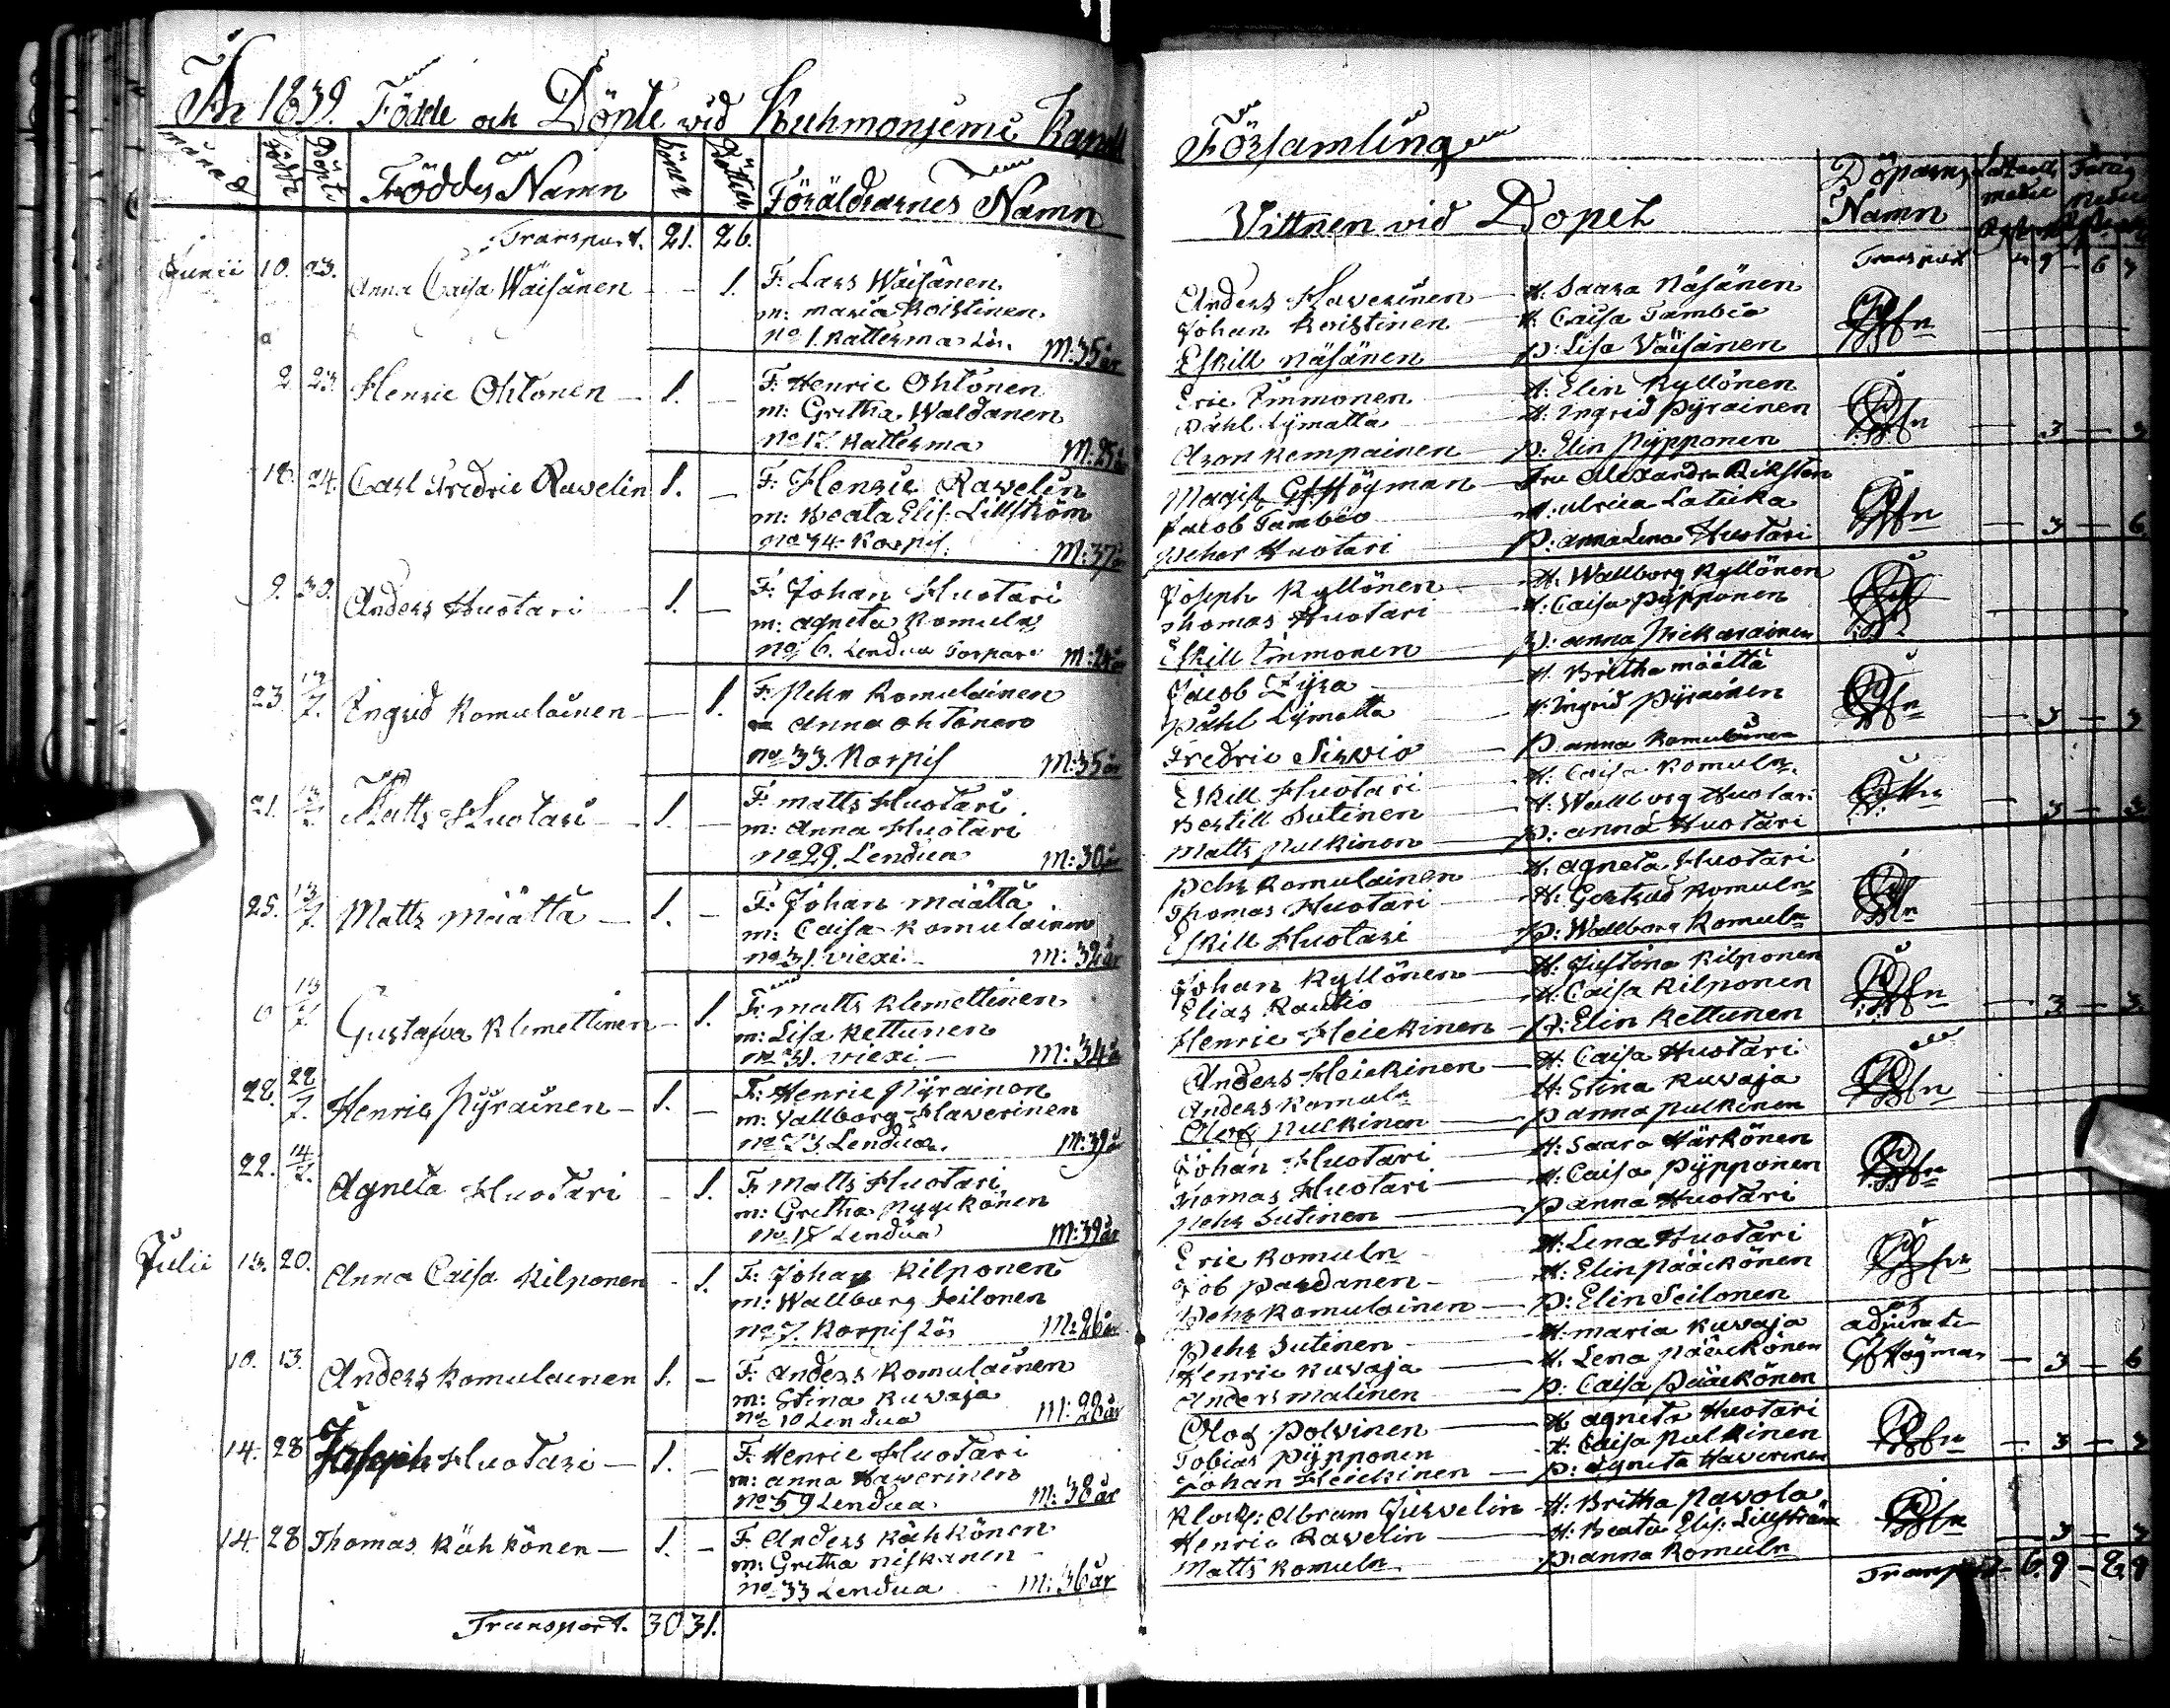 År 1839. Födde och Döpte wid Kuhmoniemi Kapell
månad
Födde
Döpte
Föddes Namn
Söner
Döttrar
Föräldrarnes Namn
Transport. 21. 26.
Junii 10. 23. Anna Caisa Wäisänen - - 1. F: Lars Wäisänen
m: Maria Koistinen
No 1. Katterma Lös. M: 35 år
2 23. Henric Ohtonen - 1. - F: Henric Ohtonen
m: Gretha Waldanen
No 17 Katterma M: 25 år
18. 24. Carl Fredric Ravelin 1. - F: Henric Ravelin
m: Beata Elis: Lillström
No 34. Korpis. M: 37 år
9. 30. Anders Huotari - 1. - F: Johan Huotari
m: Agneta Romuln
No 6. Lendua Torpare
23. 13/7. Ingrid Romulainen - - 1. F: Pehr Romulainen
Anna Ohtonen
No 33. Korpis M: 35 år
21. 13/7. Matts Huotari - 1. - F: Matts Huotari
m: Anna Huotari
No 29. Lendua M: 30 år
25. 13/7. Matts Määttä - 1. - F: Johan Määttä
m: Caisa Romulainen
No 31. Viexi - M: 32 år
13/7. Gustafva Klemettinen - 1. F: Matts Klemettinen
m: Lisa Kettunen
No 31. Viexi - M: 34 år
28. 28/7. Henric Pyrainen - 1. - F: Henric Pyrainen
m: Vallborg Haverinen
No 73 Lendua. M: 39 år
22. 14/7. Agneta Huotari - 1. F: Matts Huotari
m: Gretha Pyykönen
No 18 Lendua M: 39 år
Julii 13. 20. Anna Caisa Kilponen - 1. F: Johan Kilponen
m: Wallborg Seilonen
No 7. Korpis Lös M: 26 år
10. 13. Anders Romulainen 1. - F: Anders Romulainen
m: Stina Kuvaja
No 10 Lendua M: 28 år
14. 28 Joseph Huotari - 1. - F: Henric Huotari
m: Anna Haverinen
No 59 Lendua. M: 38 år
14. 28 Thomas Kähkönen - 1. - F: Anders Kähkönen
m: Gretha Niskanen -
No 33 Lendua - M: 36 år
Transport. 30 31.
Församling
Vittnen vid Dopet
Döparens
Namn
Transport
Anders Haverinen - H. Saara Näsänen
Johan Koistinen - H. Caisa Tambio
Eskill Näsänen - P: Lisa Väisänen
Eric Immonen - H: Elin Kyllönen
Påhl Lymatta - H: Ingrid Pyrainen
Aron Kempainen - P: Elin Pypponen - 3 - 3
Magist. Gf: Högman - Fru Alexandra Eksten
Jacob Tambio - H. Ulrica Latuka
Pehr Huotari - P: Anna Lena Huotari - 3 - 6.
Joseph Kyllönen - H. Wallborg Kyllönen
Thomas Huotari - H. Caisa Pypponen
Eskill Immonen - P: Anna Pickarainen
Jacob Lyra - H. Britha Määttä
Påhl Lymatta - H: Ingrid Pyrainen
Fredric Sirvio - P. Anna Romulainen - 3 - 3
Eskill Huotari - H: Caisa Romuln
Bertill Sutinen - H: Wallborg Huotari
Matts Pulkinen - P: Anna Huotari - 3 - 3
Pehr Romulainen - H. Agneta Huotari
Thomas Huotari - H: Gertrud Romuln
Eskill Huotari - P: Wallborg Romuln
Johan Kyllönen - H: Justina Kilponen
Elias Rautio - H: Caisa Kilponen
Henric Heickinen - P: Elin Kettunen - 3 - 3.
Anders Heickinen - H: Caisa Huotari
Anders Romuln - H: Stina Kuvaja
Olof Pulkinen - P Anna Pulkinen
Johan Huotari - H: Saara Härkönen
Thomas Huotari - H: Caisa Pypponen
Pehr Sutinen - P Anna Huotari
Eric Romuln - H: Lena Huotari
Job Pardanen - H: Elin Pääckönen
Pehr Romulainen - P: Elin Seilonen
Pehr Sutinen - H: Maria Kuvaja adjuncti
Henric Kuvaja - H. Lena Pääckönen Gf Högman - 3 - 6
Anders Malinen - P: Caisa Pääckönen
Olof Polvinen - H Agneta Huotari
Tobias Pypponen - H: Caisa Pulkinen
Johan Heickinen - P: Agneta Haverinen - 3 - 3
Klock: Abram Jurvelin - H: Britha Pavola
Henric Ravelin - H: Beata Elis: Lillström
Matts Romuln - P: Anna Romuln - 3 - 3
Transport